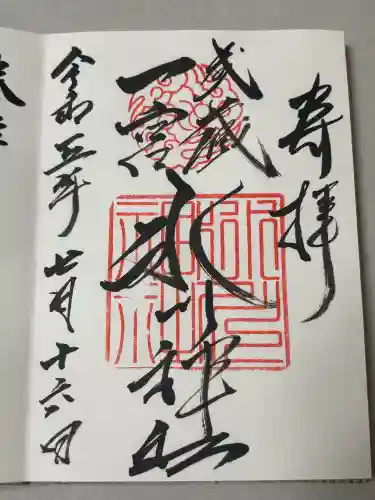 奉拝
武蔵
一宮
氷川神社
令和五年七月十六日